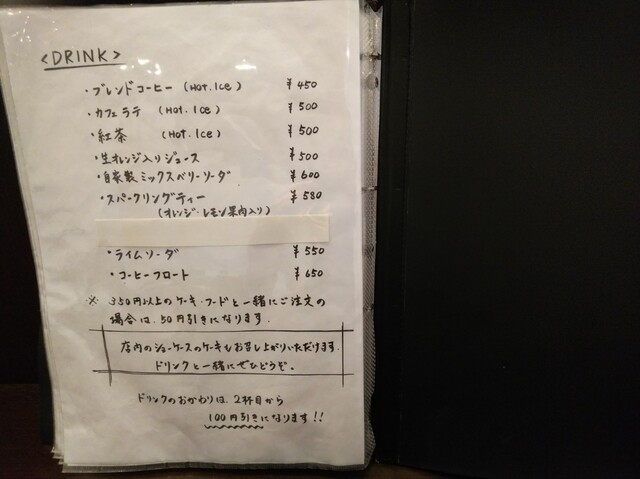 <DRINK>
・ブレンドコーヒー (Hot. Ice) ¥450
・カフェラテ (Hot. Ice) ¥500
・紅茶 (Hot. Ice) ¥500
・生オレンジ入りジュース ¥500
・自家製ミックスベリーソーダ ¥600
・スパークリングティー ¥580
(オレンジ・レモン果肉入り)
・ライムソーダ ¥550
・コーヒーフロート ¥650
※ 350円以上のケーキ・フードと一緒にご注文の
場合は、50円引きになります.
店内のショーケースのケーキもお召し上がりいただけます.
ドリンクと一緒にぜひどうぞ。
ドリンクのおかわりは、2杯目から
100円引きになります!!